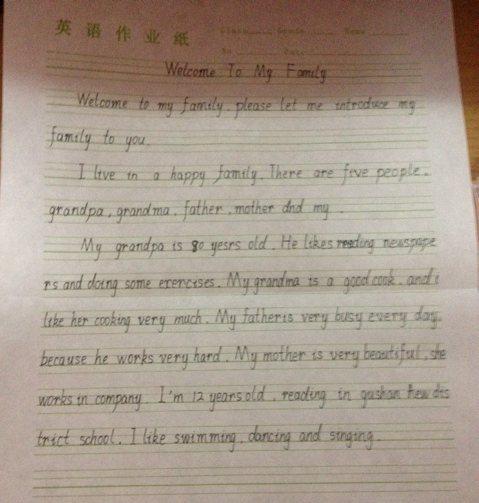 英语作业纸 Class Grade Name
No. Date
Welcome To My Family
Welcome to my family, please let me introduce my
family to you.
I live in a happy family. There are five people.
grandpa, grandma, father, mother and my.
My grandpa is 80 yesrs old. He likes reading newspape
rs and doing some exercises. My grandma is a good cook, and i
like her cooking very much. My father is very busy every day.
because he works very hard. My mother is very beautiful, she
works in company. I'm 12 years old, reading in new dis
trict school. I like swimming, dancing and singing.